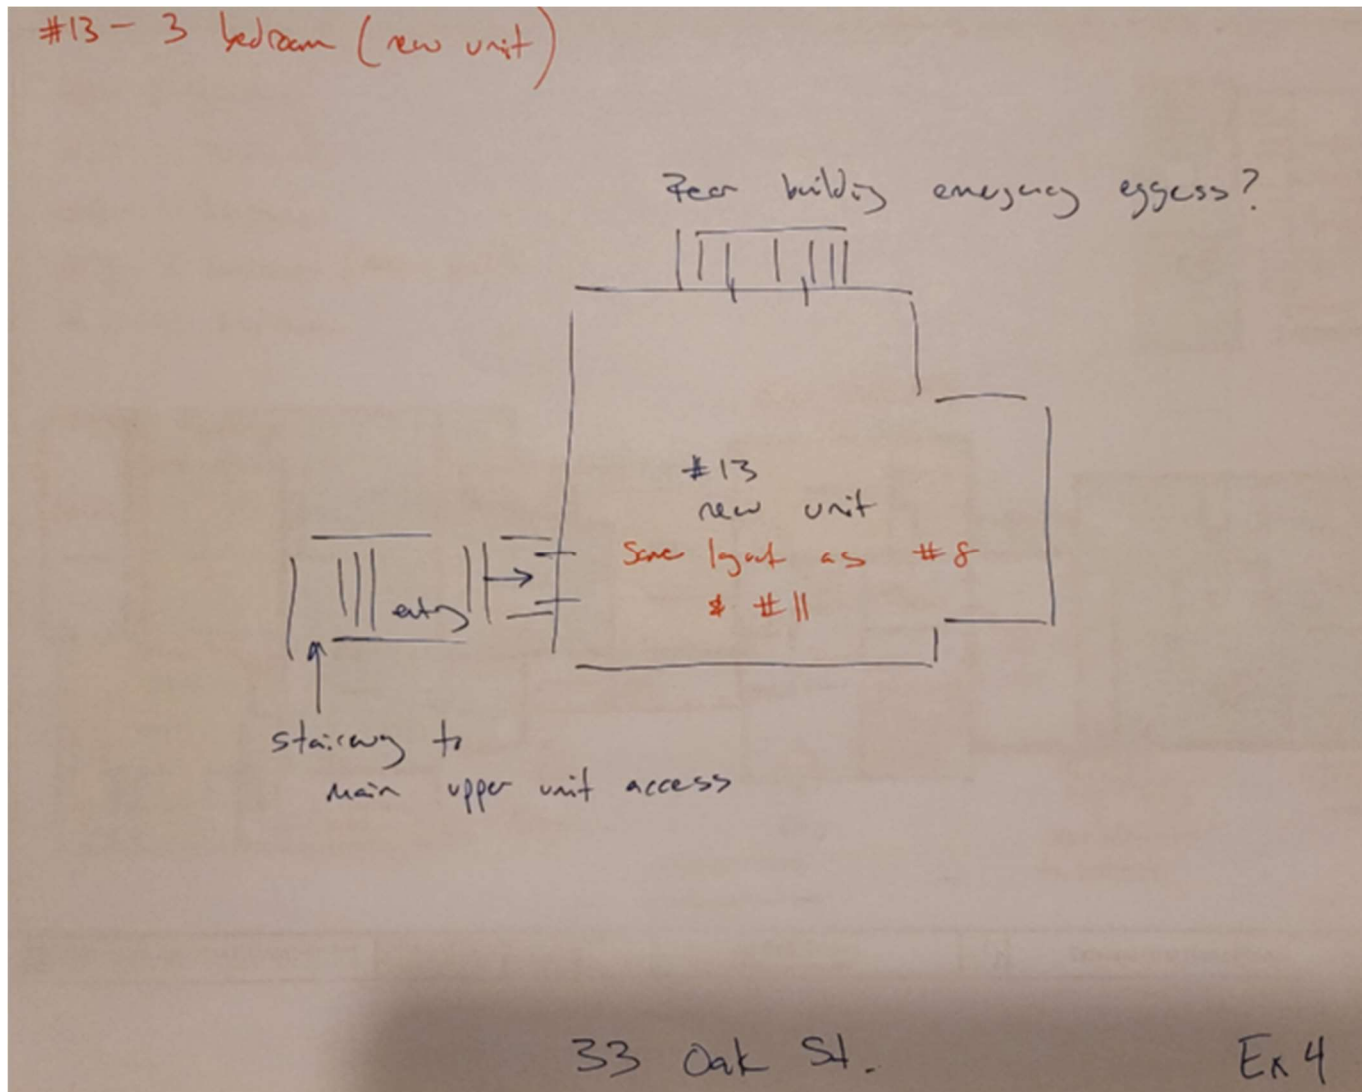 #13 - 3 bedroom (new unit)
Rear building emergency eggess?
#13
new unit
Same layout as #8
& #11
entry
stairway to
main upper unit access
33 Oak St.
Ex 4